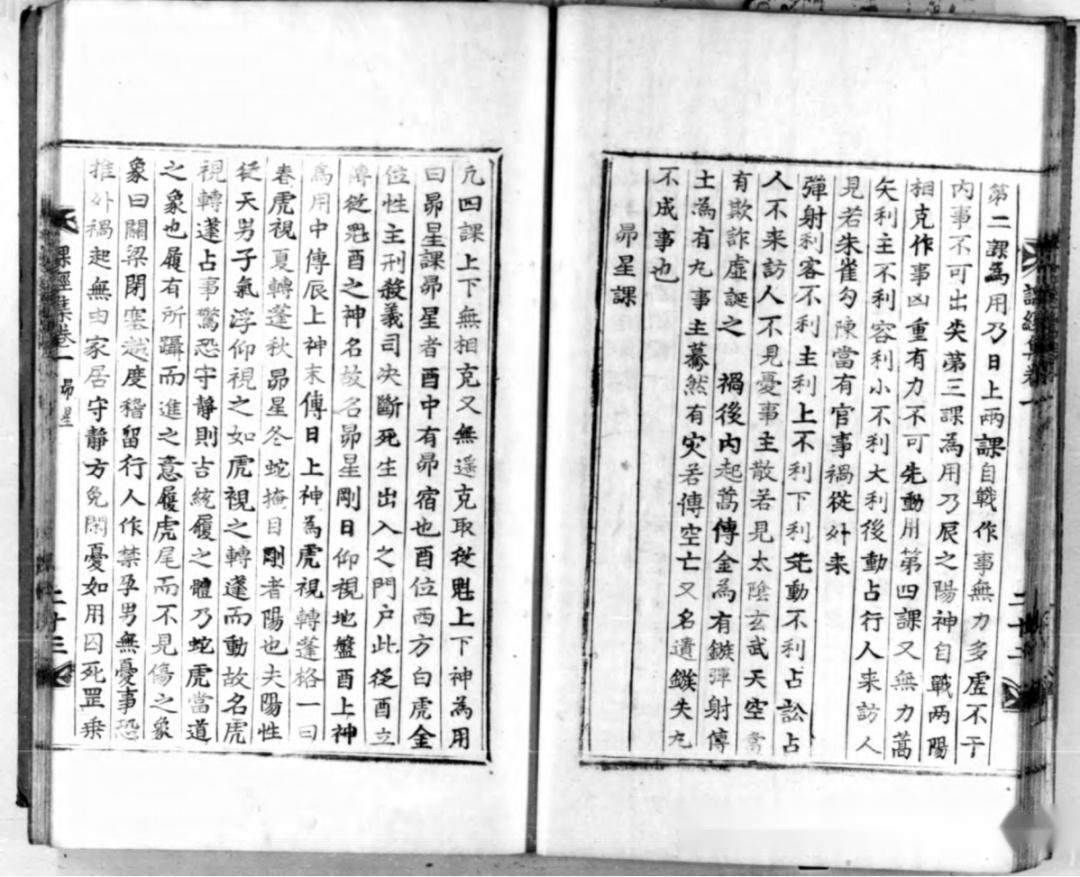 課經集卷一
二十二
第二課為用乃日上兩課自戰作事無力多虛不于
内事不可出矣第三課為用乃辰之陽神自戰两陽
相克作事凶重有力不可先動用第四課又無力蒿
矢利主不利容利小不利大利後動占行人来訪人
見若朱雀勾陳當有官事禍從外来
彈射利客不利主利上不利下利先動不利占訟占
人不来訪人不見憂事主散若見太陰玄武天空當
有欺詐虛誕之禍後内起蒿傳金為有鏃彈射傳
土為有丸事主驀然有灾若傳空亡又名遺鏃失丸
不成事也
昴星課
凢四課上下無相克又無遥克取從魁上下神為用
曰昴星課昴星者酉中有昴宿也酉位西方白虎金
位性主刑殺義司决斷死生出入之門户此從酉立
傳從魁酉之神名故名昴星剛日仰視地盤酉上神
為用中傳辰上神末傳日上神為虎視轉蓬格一曰
春虎視夏轉蓬秋昴星冬蛇掩目剛者陽也夫陽性
從天男子氣浮仰視之如虎視之轉蓬而動故名虎
視轉蓬占事驚恐守静則吉統履之體乃蛇虎當道
之象也履有所躡而進之意履虎尾而不見傷之象
象曰關梁閉塞越度稽留行人作禁孕男無憂事恐
推外禍起無由家居守静方免閑憂如用囚死罡乗
課經集卷一 昴星
二十三